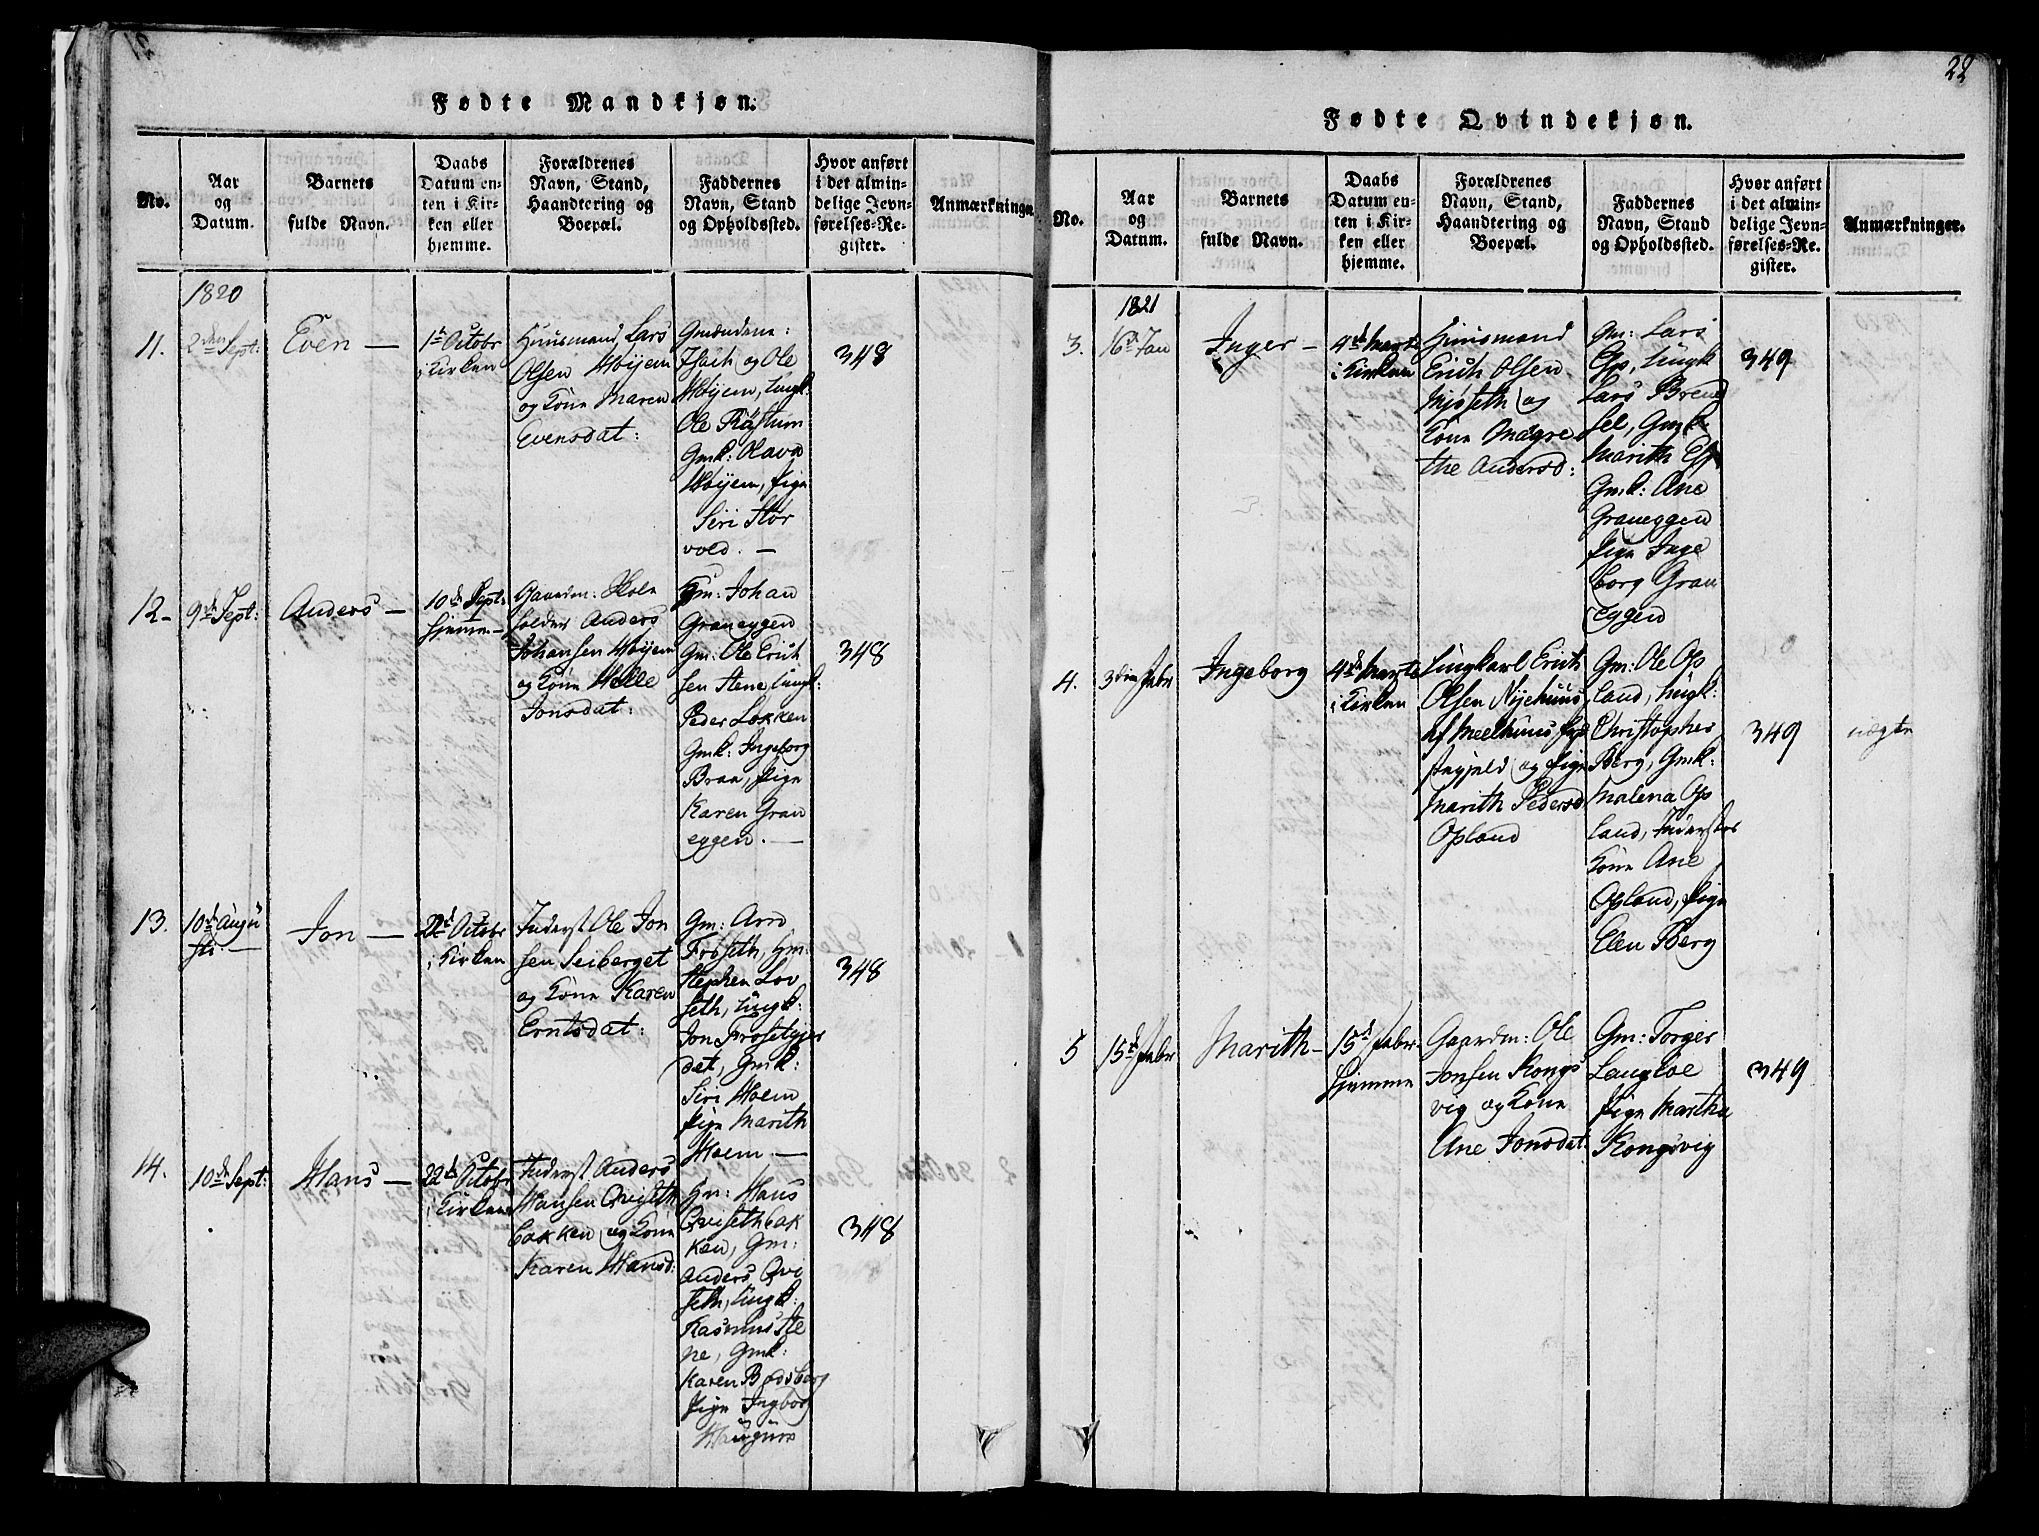 22
Fødte Mandkjøn.
No.
Aar
og
Datum.
Barnets
fulde Navn.
Daabs
Datum en-
ten i Kir-
ken eller
hjemme.
Forældrenes
Navn, Stand,
Haandtering og
Boepæl.
Faddernes
Navn, Stand
og Opholdssted.
Hvor anført
i det almin-
delige Jevn-
førelses-Re-
gister.
Anmærkninger.
1820
11.
2den Sept:
Even —
1ste Octobr
i Kirken
Huusmand Lars
Olsen Høijem
og Kone Maren
Evensdat:
Gmændene:
Isach og Ole
Høijem, Ungk:
Ole Røstum
Gmk: Olava
Høijem, Pige
Siri Stor
vold. —
348
12-
9de Sept:
Anders —
10de Sept:
hjemme —
Gaardm: Skole
holder Anders
Johansen Høijem
og Kone Helle
Jonsdat:
Gm: Johan
Graneggen
Gm: Ole Erich
sen Stene Ungk:
Peder Løkken
Gmk: Ingeborg
Braa, Pige
Karen Gran
eggen. —
348
13.
10de Augu
sti. —
Jon —
22d Octobr
i Kirken
Inderst Ole Jon
sen Seiberget
og Kone Karen
Erntsdat:
Gm: Arn
Frøseth, Gm:
Stephen Lov
seth, Ungk:
Jon Frosetgjer
det, Gmk:
Siri Hoem
Pige Marith
Hoem. —
348
14.
10de Sept:
Hans —
22d Octobr
i Kirken
Inderst Anders
Hansen Qviseth
bakken og Kone
Karen Hansd:
Gm: Hans
Qvisethbak
ken, Gm:
Anders Qvi
seth, Ungk:
Rasmus Ste
ne, Gmk:
Karen Bødsberg
Pige Ingborg
Haugum
348
Fødte Qvindekjøn.
No.
Aar
og
Datum.
Barnets
fulde Navn.
Daabs
Datum en-
ten i Kir-
ken eller
hjemme.
Forældrenes
Navn, Stand,
Haandtering og
Boepæl.
Faddernes
Navn, Stand
og Opholdssted.
Hvor anført
i det almin-
delige Jevn-
førelses-Re-
gister.
Anmærkninger.
1821
3.
16d Jan
Inger —
4de Marts
i Kirken
Huusmand
Erich Olsen
Mjøseth og
Kone Magre
the Andersd:
Gm: Lars
Esp, Ungk
Lars Brend
sel, Gmk:
Marith Esp
Gmk: Ane
Graneggen
Pige Inge
borg Gran
eggen
349
4.
3die Febr
Ingeborg
4de Marts
i Kirken
Ungkarl Erich
Olsen Nyehuus
af Meelhuus Præ
stegjeld og Pige
Marith Pedersd
Opland
Gm: Ole Op
land, Ungk:
Christopher
Berg, Gmk:
Malena Op
land, Inderstes
Kone Ane
Opland, Pige
Elen Berg
349
uægte
5
15d Febr
Marith —
15d Febr
hjemme
Gaardm: Ole
Jonsen Kongs
vig og Kone
Ane Jonsdat:
Gm: Torger
Langloe
Pige Martha
Kongsvig
349